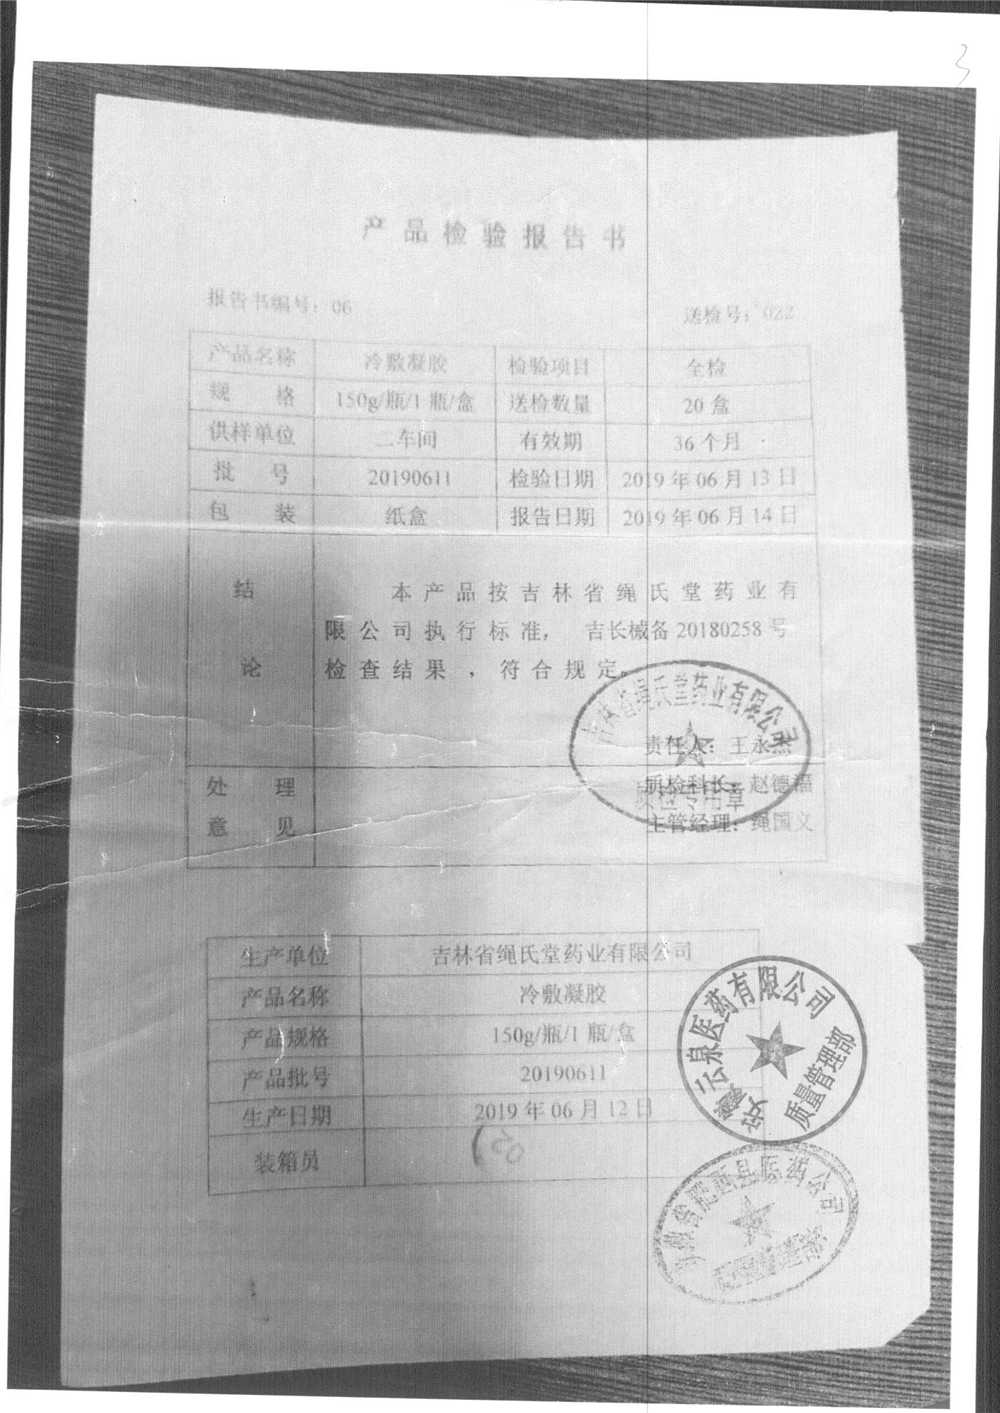 3
产品检验报告书
报告书编号：06 送检号：022
产品名称 冷敷凝胶 检验项目 全检
规格 150g/瓶/1瓶/盒 送检数量 20盒
供样单位 二车间 有效期 36个月
批号 20190611 检验日期 2019年06月13日
包装 纸盒 报告日期 2019年06月14日
结论
本产品按吉林省绳氏堂药业有
限公司执行标准，吉长械备20180258号
检查结果，符合规定。
吉林省绳氏堂药业有限公司
质检专用章
责任人：王永杰
处理意见
质检科长：赵德福
主管经理：绳国文
生产单位 吉林省绳氏堂药业有限公司
产品名称 冷敷凝胶
产品规格 150g/瓶/1瓶/盒
产品批号 20190611
生产日期 2019年06月12日
装箱员
安徽云泉医药有限公司
质量管理部
安徽省肥西县医药公司